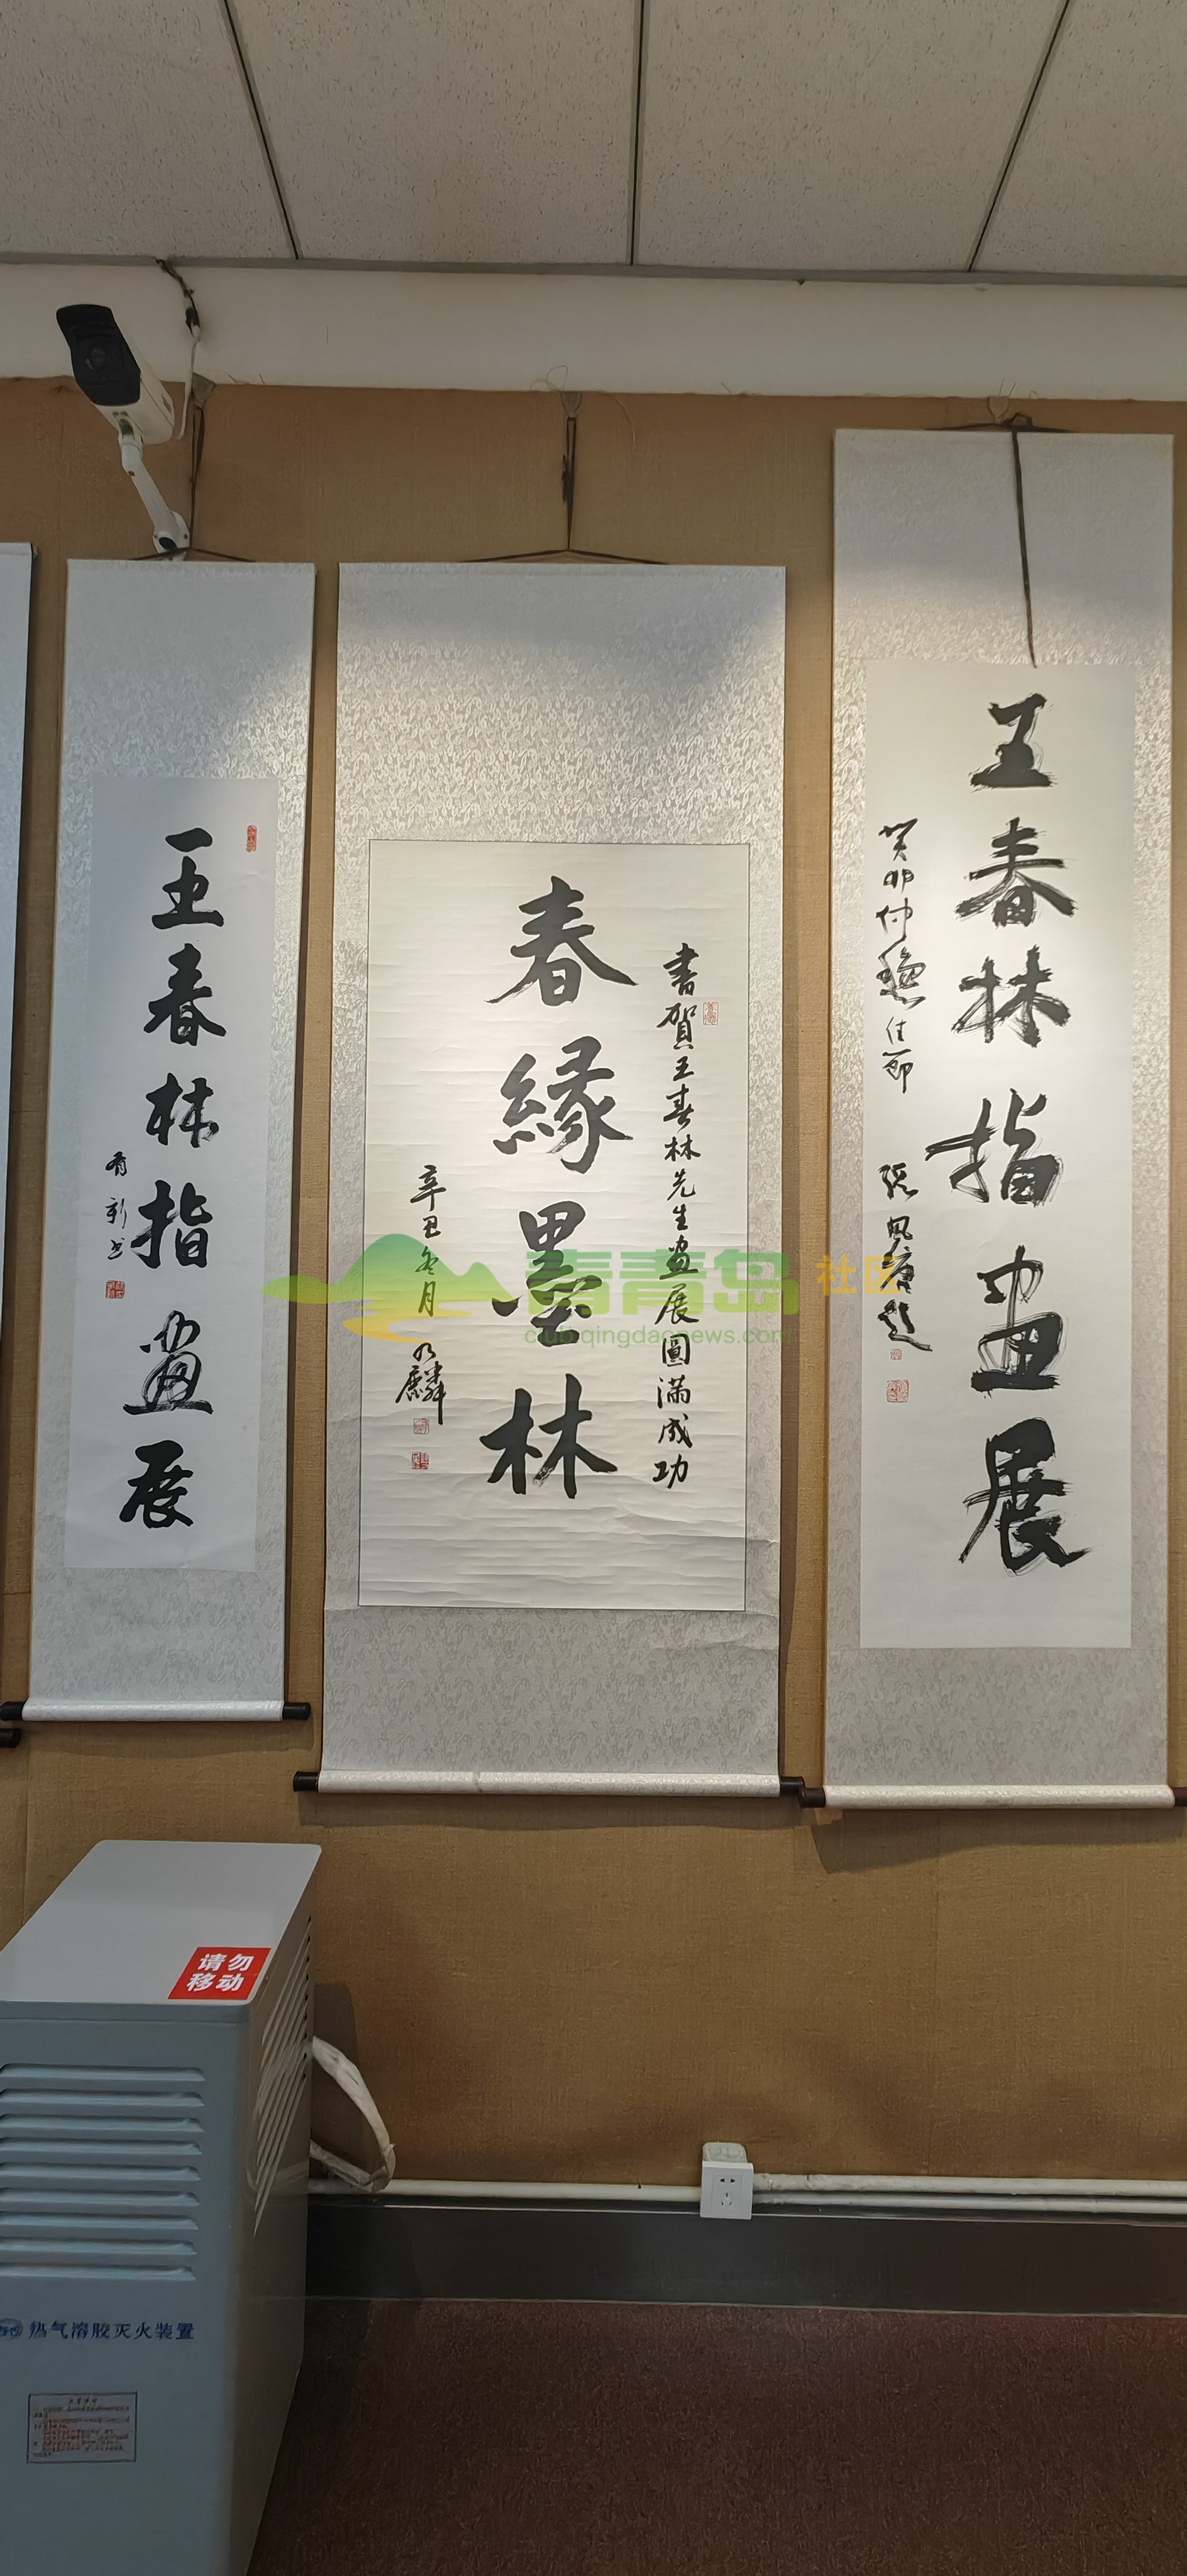 王春林指畫展
癸卯仲穐佳節
張風塘題
書賀王春林先生畫展圓滿成功
春緣墨林
辛丑冬月
乃麟
王春林指畫展
有新书
青青岛社区
club.qingdaonews.com
请勿
移动
热气溶胶灭火装置